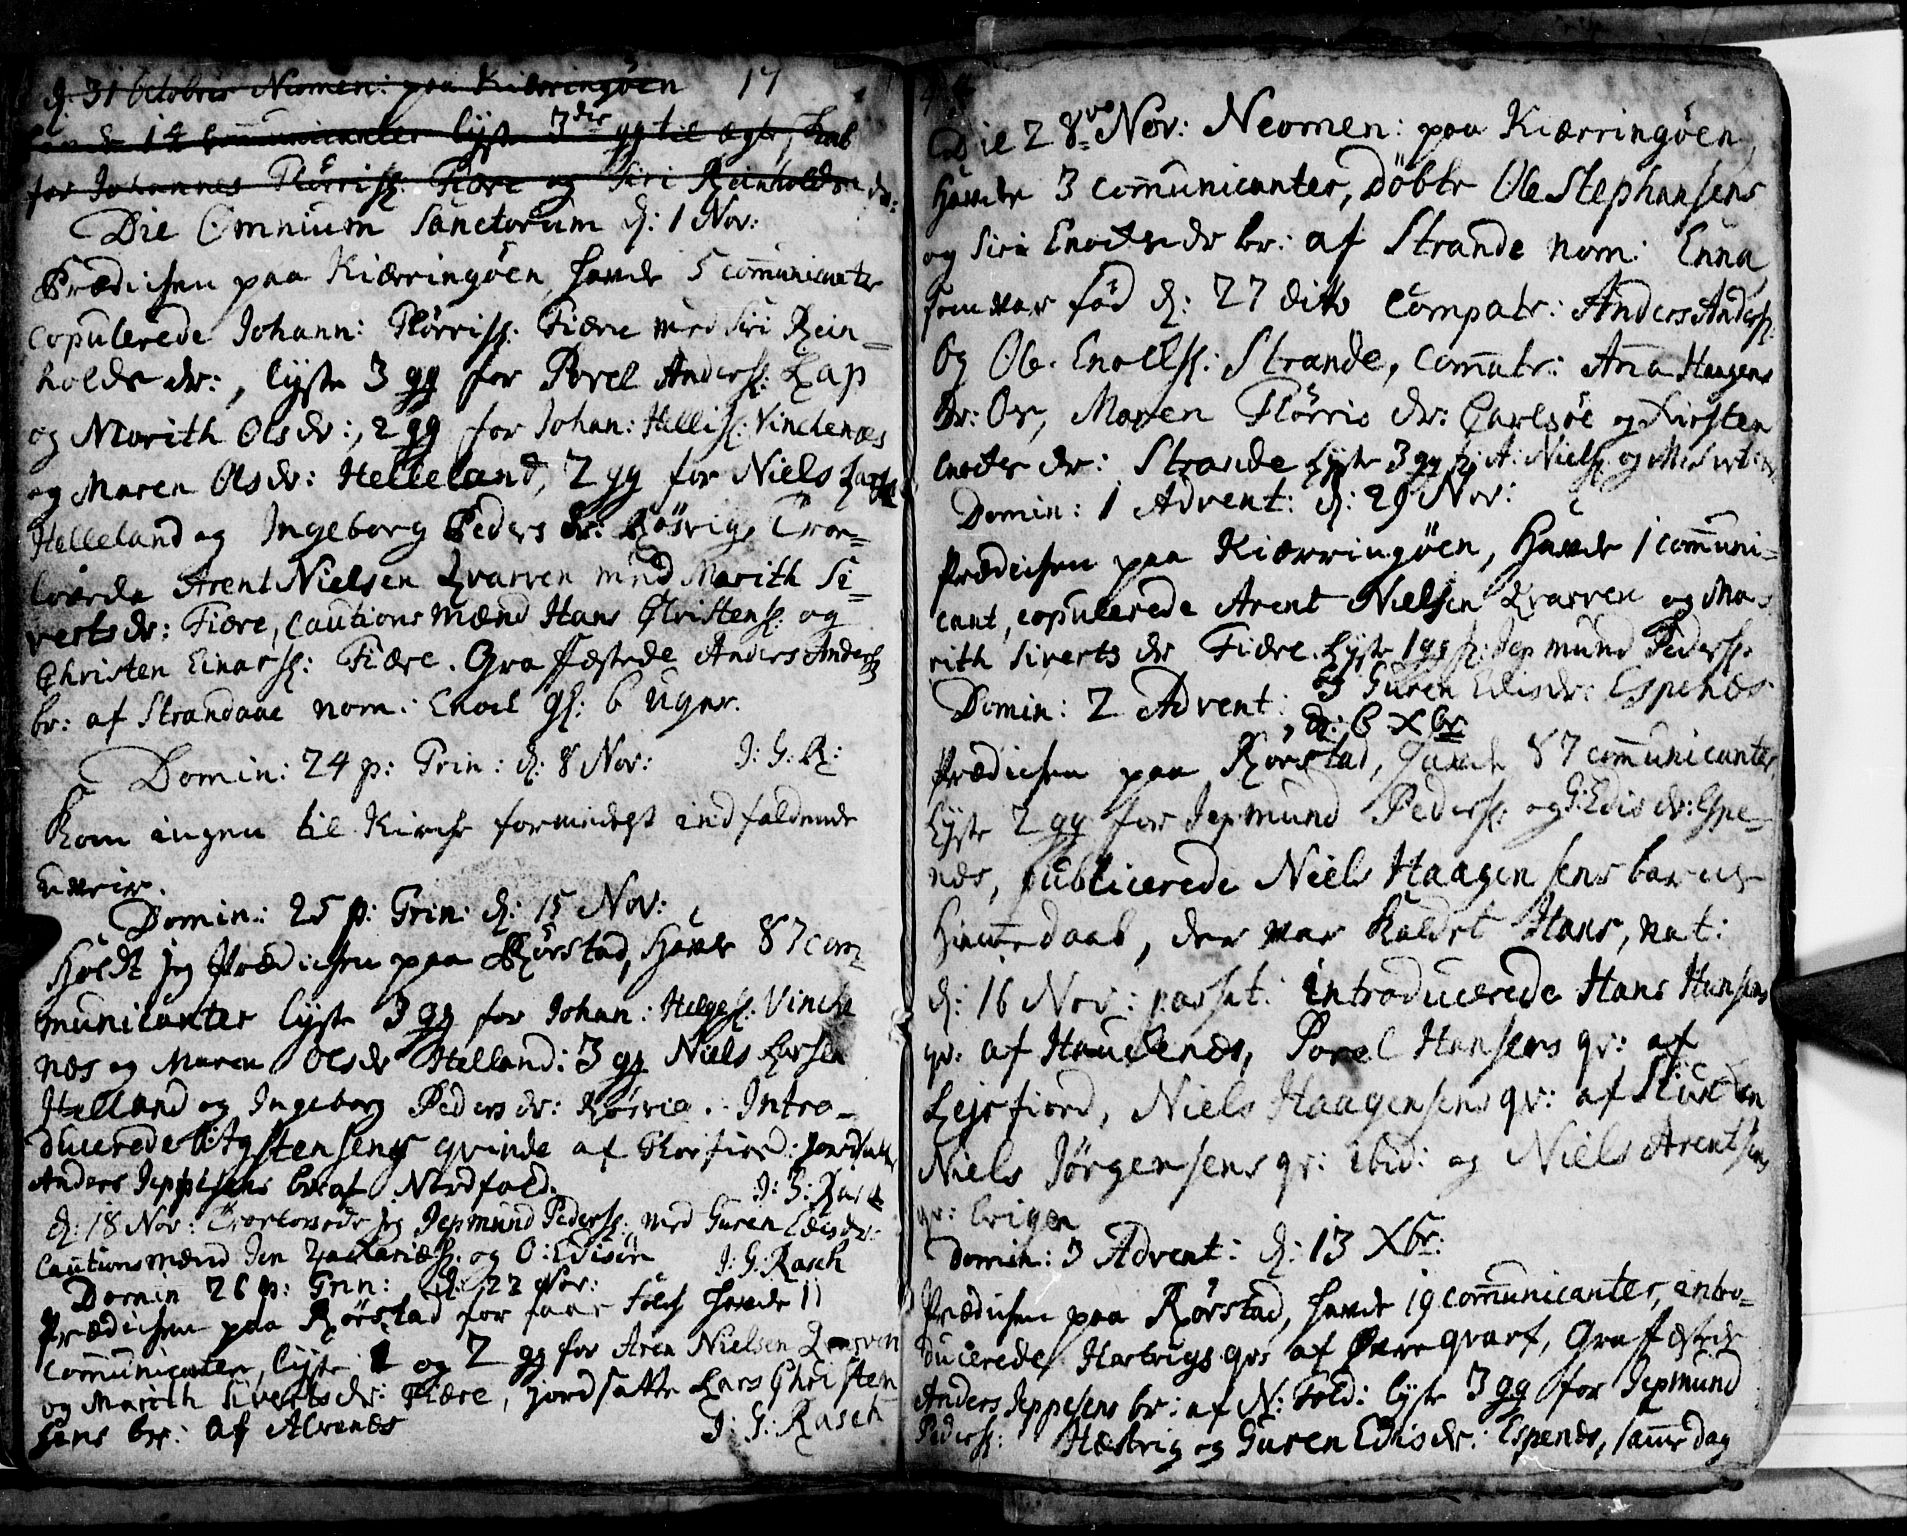 d: 31 Octobris Neomen: paa Kiærringøen 17
hafde 14 communicanter lyste 3die gg til ægteskab
for Johannes Flörriss: Fiære og Siri Reinholdsdr:
Die Omnium Sanctorum d: 1 Nov:
Prædichen paa Kiærringøen, hafde 5 communicanter
copulerede Johann: Flörriss: Fiære med Siri Rein=
holds dr:, lyste 3 gg for Povel Anderss: Lap
og Marith Olsdr:, 2 gg for Johan: Helliss: Vinchenæs
og Maren Olsdr: Helleland, 2 gg for Niels Larss:
Helleland og Ingeborg Peders dr: Rösvig, Troe=
lovede Arent Nielsen Qvarven med Marith Si=
verts dr: Fiære, Cautions Mænd Hans Christens: og
Christen Einarss: Fiære. Graffæstede Anders Anderss:
br: af Strandaae nom: Enoch gl: 6 uger.
Domin: 24 p: Trin: d: 8 Nov: J: G: R:
Kom ingen til Kirche formedelst indfaldende
uveir.
Domin: 25 p: Trin: d: 15 Nov:
Holdt jeg Prædichen paa Rörstad, hafde 87 com=
municanter lyste 3 gg for Johan: Helgess: Vinche
næs og Maren Olsdr Helland: 3 gg Niels Larsen
Helland og Ingeborg Peders dr: Rösvig. Intro=
ducerede Aystensens qvinde af Torfiord: jordsatte
Anders Jeppesens br: af Nordfold. J: G: Rasch
d: 18 Nov: Troelovede jeg Jepmund Pederss: med Guren Edisdr:
Cautionsmænd Jen Zachariæss: og O: Edisön J: G: Rasch
Domin 26 p: Trin: d: 22 Nov:
Prædichen paa Rörstad for faae Folch hafde 11
communicanter, lyste 1 og 2 gg for Aren Nielsen Qvarven
og Marith Siverts dr: Fiære, jordsatte Lars Christen
sens br: af Alvenæs J: G: Rasch
Die 28vo Nov: Neomen: paa Kiærringøen,
hafde 3 communicanter, Döbte Ole Stephansens
og Siri Enochs dr br: af Strande nom: Enna,
som var föd d: 27 dito Compatr: Anders Anderss:
Og Ole Enochss: Strande, Commatr: Anna Haagens
dr: Øy, Maren Flörris dr: Carlsöe og Kirsten
Enochs dr: Strande Lyste 3 gg f: A: Niels: og M: Sivertsdr
Domin: 1 Advent: d: 29 Nov:
Prædichen paa Kiærringøen, hafde 1 communi=
cant, copulerede Arent Nielsen Qvarven og Ma=
rith Siverts dr Fiære. Lyste 1 gg f: Jepmund Pederss:
Domin: 2 Advent: og Guren Edisdr: Espenæs.
d: 6 Xbr:
Prædichen paa Rörstad, hafde 87 communicanter
Lyste 2 gg for Jepmund Pederss: og G: Edis dr: Espe=
næs, publicerede Niels Haagensens barns
hiemmedaab, der var kaldet Hans, nat:
d: 16 Nov: passat: Introducerede Hans Hansens
qv: af Haudenæs, Povel Hansens qv: af
Lejrfiord, Niels Haagensens qv: af
Niels Jörgensens qv: ibid: og Niels Arentsens
qv:
Domin: 3 Advent: d: 13 Xbr:
Prædichen paa Rörstad, hafde 19 communicanter, intro=
ducerede Hartvigs qv: af Øvre Qvarf, Graffæstede
Anders Jeppesens br: af N: Fold: lyste 3 gg for Jepmund
Pederss: Hæstvig og Guren Edisdr: Espenæs, samme dag